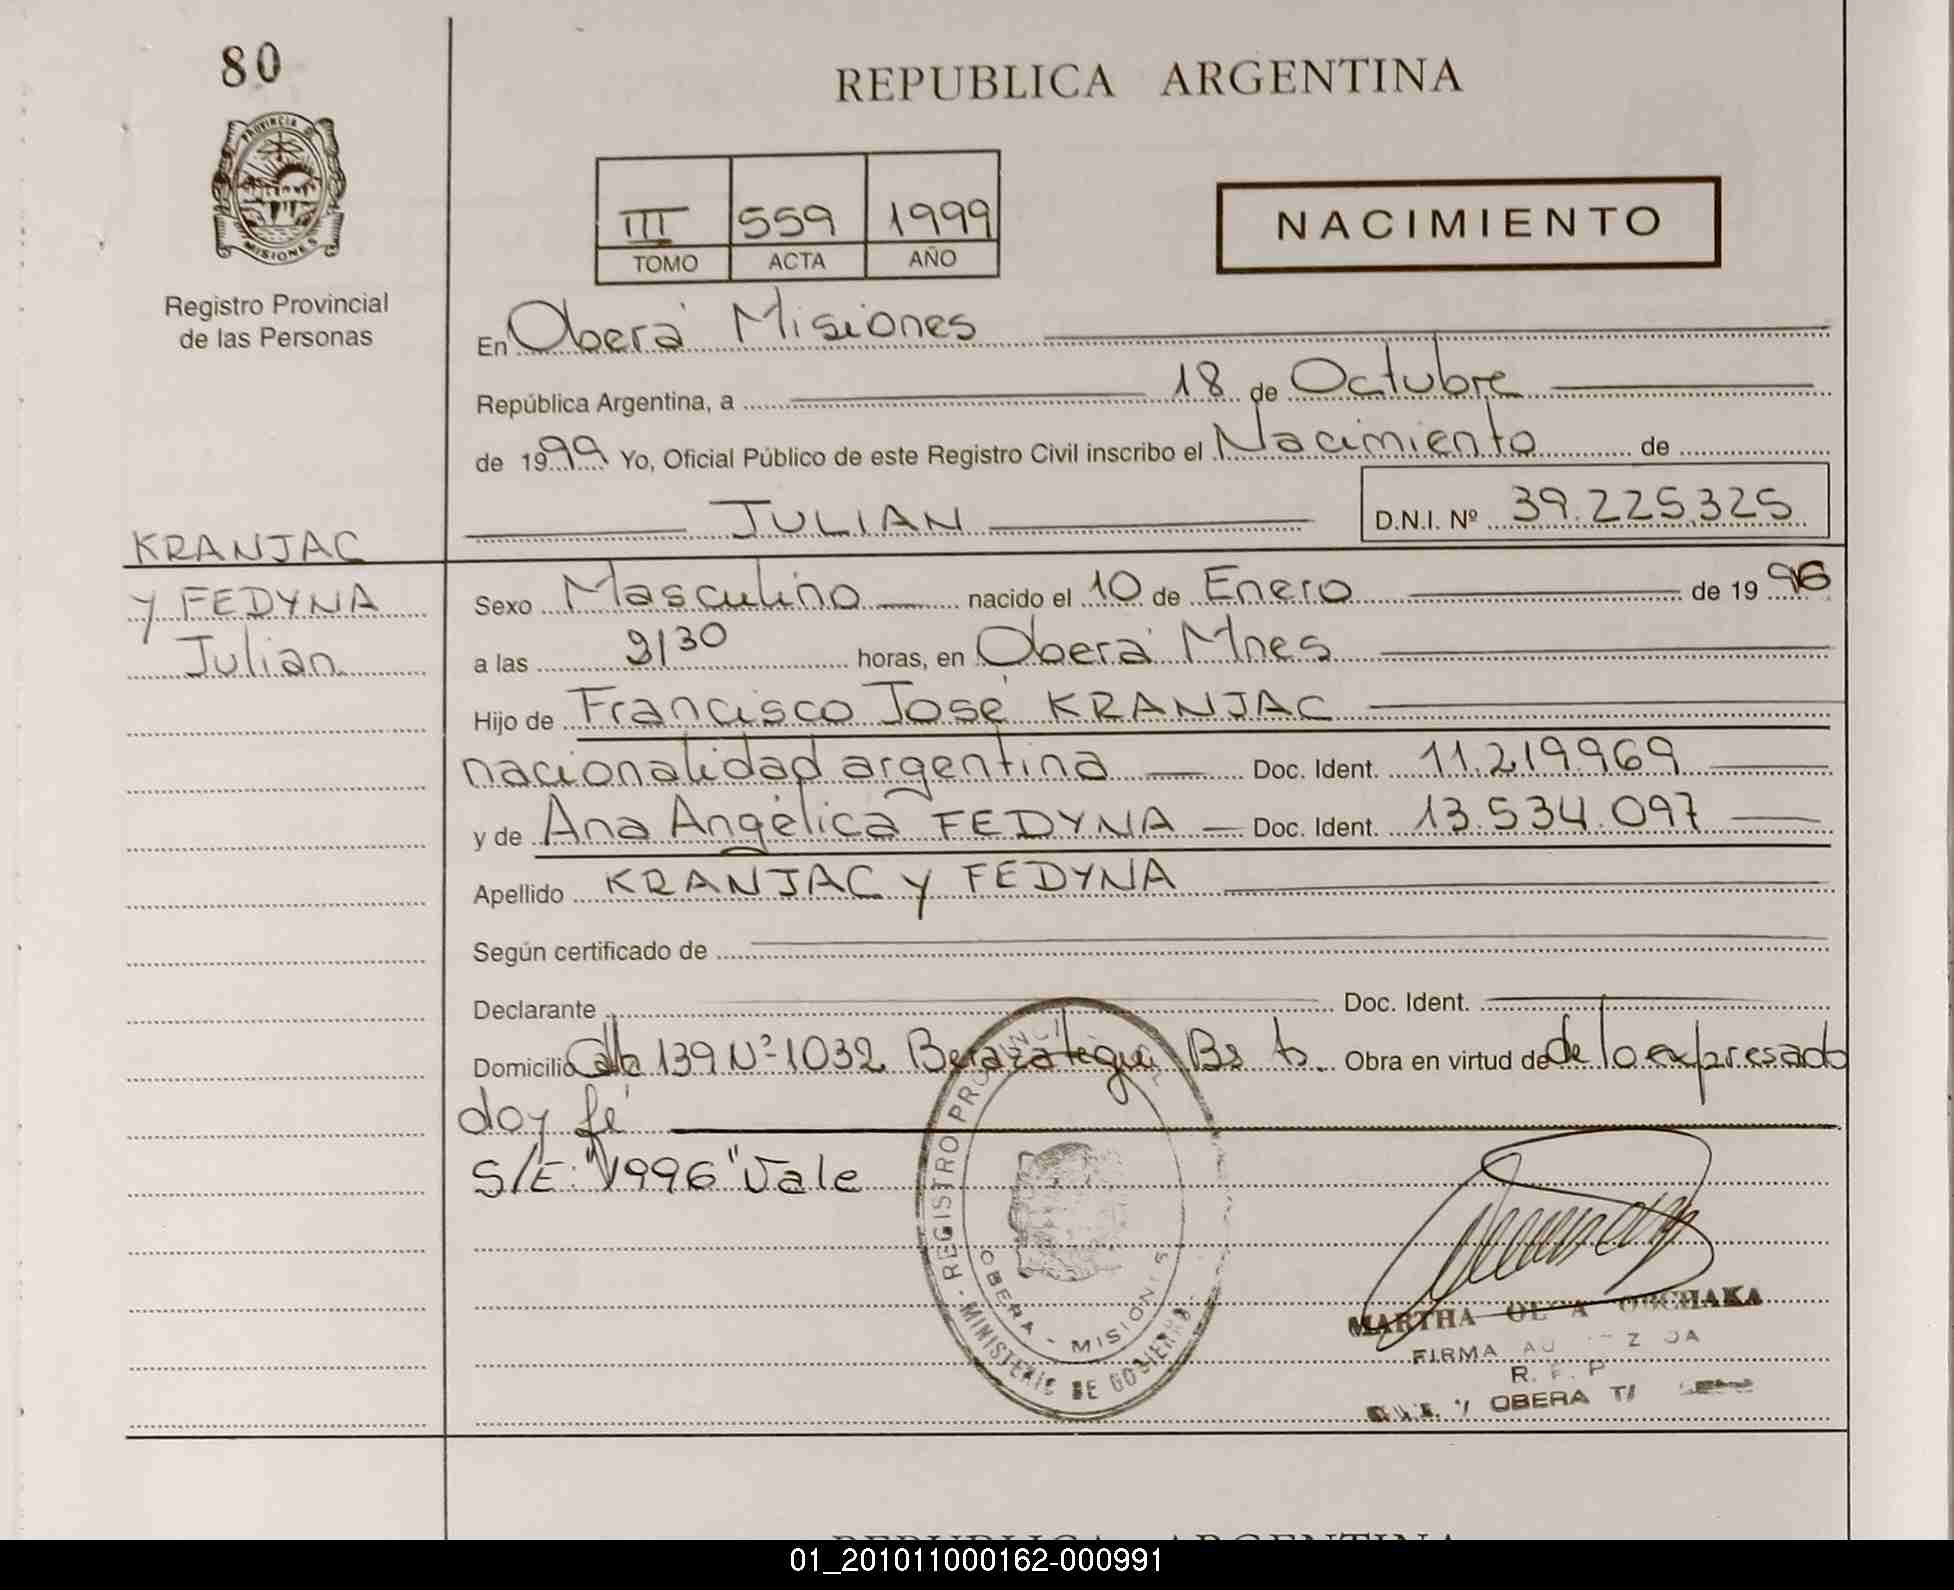 80
PROVINCIA DE
MISIONES
Registro Provincial
de las Personas
KRANJAC
y FEDYNA
Julian
REPUBLICA ARGENTINA
III 559 1999
TOMO ACTA AÑO
NACIMIENTO
En Oberá Misiones
República Argentina, a 18 de Octubre
de 1999 Yo, Oficial Público de este Registro Civil inscribo el Nacimiento de
JULIAN D.N.I. Nº 39.225.325
Sexo Masculino nacido el 10 de Enero de 1996
a las 9/30 horas, en Oberá Mnes
Hijo de Francisco José KRANJAC
nacionalidad argentina Doc. Ident. 11.219969
y de Ana Angélica FEDYNA Doc. Ident. 13.534.097
Apellido KRANJAC y FEDYNA
Según certificado de
Declarante Doc. Ident.
Domicilio Calle 139 Nº 1032 Berazategui Bs As Obra en virtud de de lo expresado
doy fé
S/E: "1996" Vale
REGISTRO
MINISTERIO DE GOBIERNO
OBERA - MISIONES
MARTHA
FIRMA
OBERA
REPUBLICA ARGENTINA
01_201011000162-000991